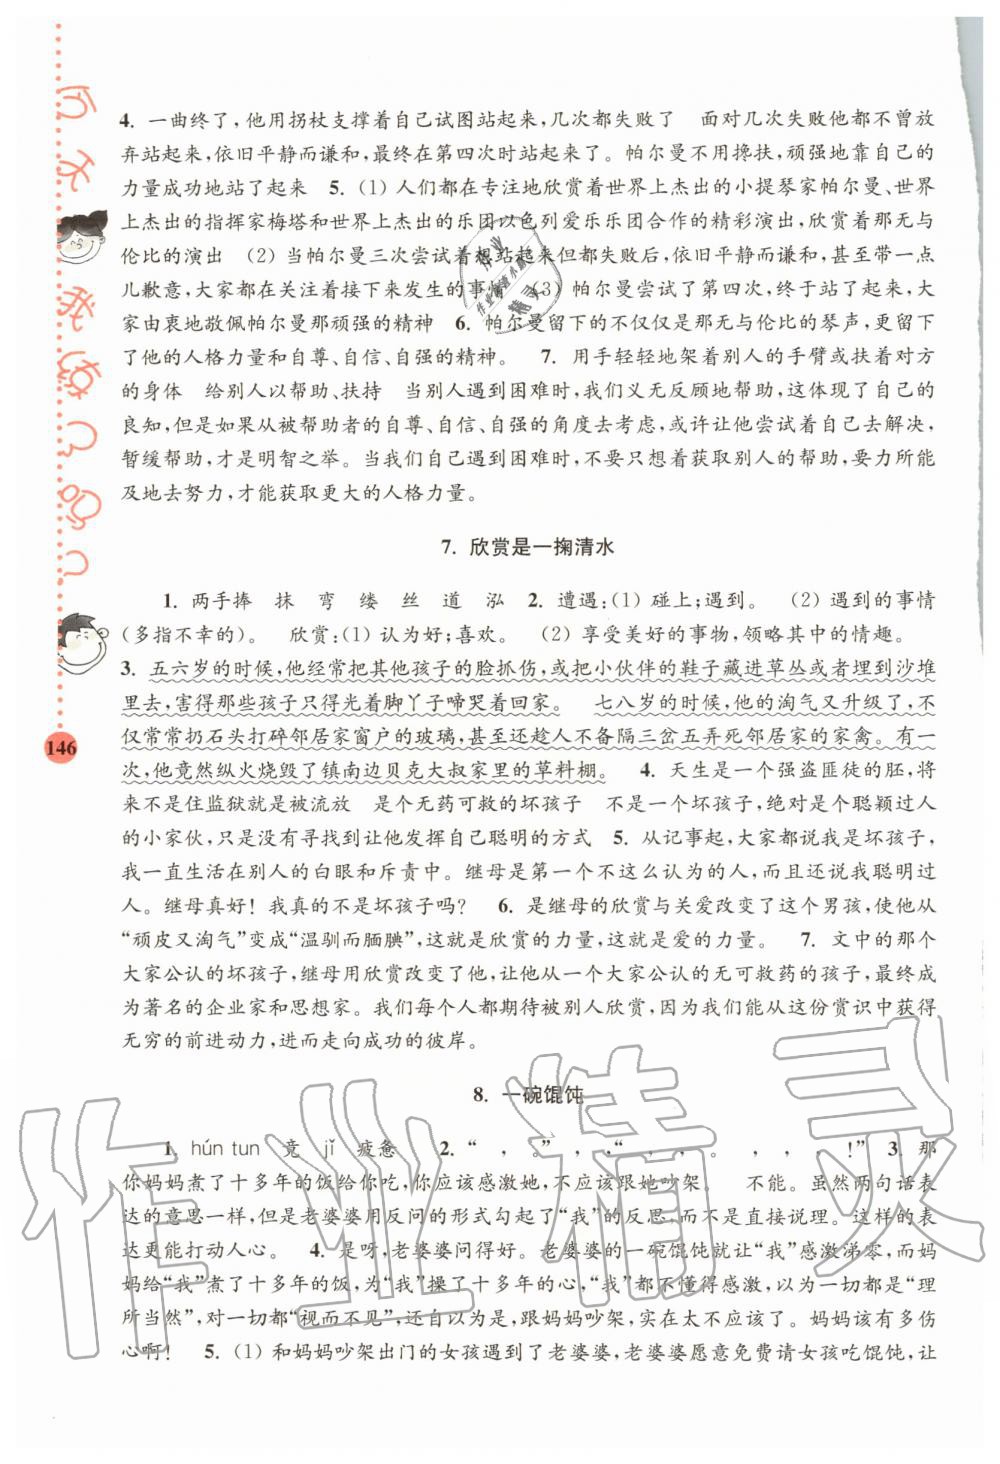 4. 一曲终了，他用拐杖支撑着自己试图站起来，几次都失败了　面对几次失败他都不曾放
弃站起来，依旧平静而谦和，最终在第四次时站起来了。帕尔曼不用搀扶，顽强地靠自己的
力量成功地站了起来　5. (1) 人们都在专注地欣赏着世界上杰出的小提琴家帕尔曼、世界
上杰出的指挥家梅塔和世界上杰出的乐团以色列爱乐乐团合作的精彩演出，欣赏着那无与
伦比的演出　(2) 当帕尔曼三次尝试着想站起来但都失败后，依旧平静而谦和，甚至带一点
儿歉意，大家都在关注着接下来发生的事情　(3) 帕尔曼尝试了第四次，终于站了起来，大
家由衷地敬佩帕尔曼那顽强的精神　6. 帕尔曼留下的不仅仅是无与伦比的琴声，更留下
了他的人格力量和自尊、自信、自强的精神。　7. 用手轻轻地架着别人的手臂或扶着对方
的身体　给别人以帮助、扶持　当别人遇到困难时，我们义无反顾地帮助，这体现了自己的
良知，但是如果从被帮助者的自尊、自信、自强的角度去考虑，或许让他尝试着自己去解决，
暂缓帮助，才是明智之举。当我们自己遇到困难时，不要只想着获取别人的帮助，要力所能
及地去努力，才能获取更大的人格力量。
7. 欣赏是一掬清水
1. 两手捧　抹　弯　缕　丝　道　泓　2. 遭遇：(1) 碰上；遇到。　(2) 遇到的事情
(多指不幸的)。　欣赏：(1) 认为好；喜欢。　(2) 享受美好的事物，领略其中的情趣。
3. 五六岁的时候，他经常把其他孩子的脸抓伤，或把小伙伴的鞋子藏进草丛或者埋到沙堆
里去，害得那些孩子只得光着脚丫子啼哭着回家。　七八岁的时候，他的淘气又升级了，不
仅常常扔石头打碎邻居家窗户的玻璃，甚至还趁人不备隔三岔五弄死邻居家的家禽。有一
次，他竟然纵火烧毁了镇南边贝克大叔家里的草料棚。　4. 天生是一个强盗匪徒的胚，将
来不是住监狱就是被流放　是个无药可救的坏孩子　不是一个坏孩子，绝对是个聪颖过人
的小家伙，只是没有寻找到让他发挥自己聪明的方式　5. 从记事起，大家都说我是坏孩子，
我一直生活在别人的白眼和斥责中。继母是第一个不这么认为的人，而且还说我聪明过
人。继母真好！我真的不是坏孩子吗？　6. 是继母的欣赏与关爱改变了这个男孩，使他从
“顽皮又淘气”变成“温驯而腼腆”，这就是欣赏的力量，这就是爱的力量。　7. 文中的那个
大家公认的坏孩子，继母用欣赏改变了他，让他从一个大家公认的无可救药的孩子，最终成
为著名的企业家和思想家。我们每个人都期待被别人欣赏，因为我们能从这份赏识中获得
无穷的前进动力，进而走向成功的彼岸。
8. 一碗馄饨
1. hún tun　竟　jǐ　疲惫　2. “　，。”　，“　，，。，，，！”　3. 那
你妈妈煮了十多年的饭给你吃，你应该感激她，不应该跟她吵架。　不能。虽然两句话表
达的意思一样，但是老婆婆用反问的形式勾起了“我”的反思，而不是直接说理。这样的表
达更能打动人心。　4. 是呀，老婆婆问得好。老婆婆的一碗馄饨就让“我”感激涕零，而妈
妈给“我”煮了十多年的饭，为“我”操了十多年的心，“我”都不懂得感激，以为一切都是“理
所当然”，对一切都“视而不见”，还自以为是，跟妈妈吵架，实在太不应该了。妈妈该有多伤
心啊！　5. (1) 和妈妈吵架出门的女孩遇到了老婆婆，老婆婆愿意免费请女孩吃馄饨，让
146
作业精灵